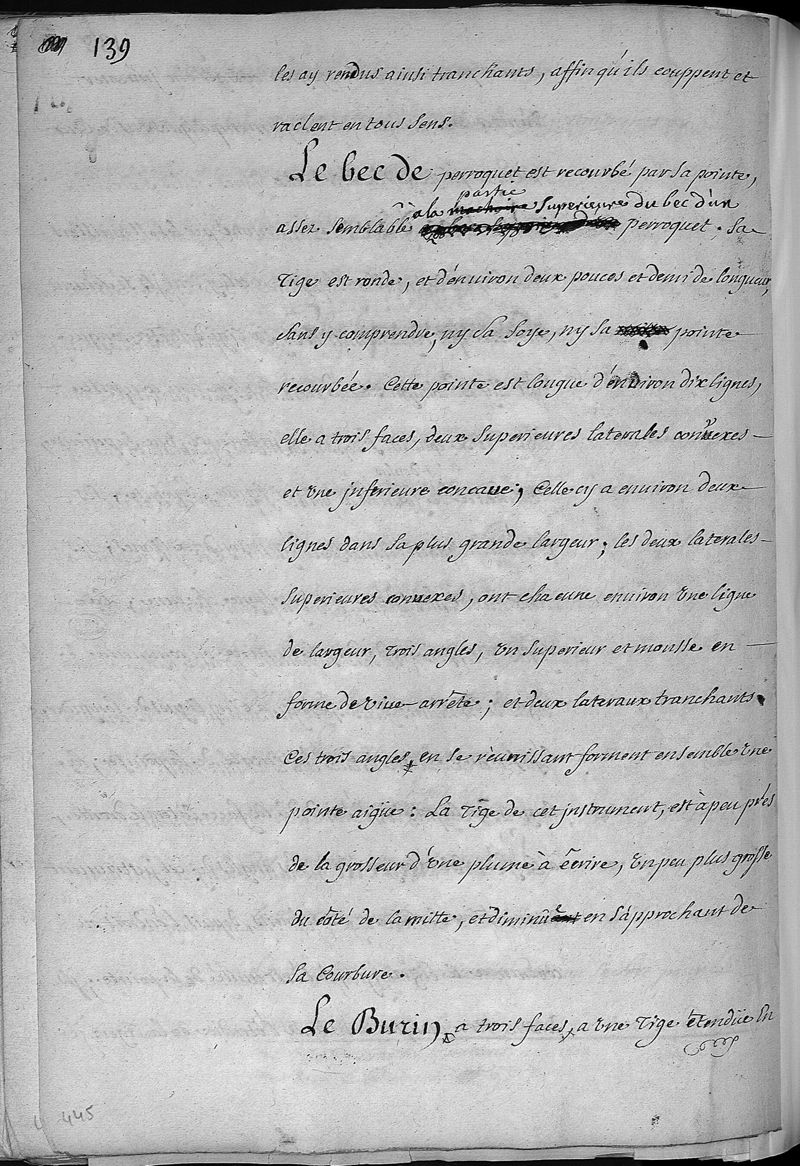 139
les ay rendus ainsi tranchants, affin qu'ils couppent et
raclent en tous sens.
Le bec de perroquet est recourbé par sa pointe,
partie
a la machoire superieure du bec d'un
assez semblable perroquet. Sa
Tige est ronde, et d'environ deux pouces et demi de longueur,
sans y comprendre, ny sa soye, ny sa pointe
recourbée. Cette pointe est longue d'environ dix lignes,
elle a trois faces, deux superieures laterales convexes
et une jnferieure concaue; Celle cy a environ deux
lignes dans sa plus grande largeur; les deux laterales
superieures convexes, ont chacune environ une ligne
de largeur, trois angles, un superieur et mousse en
forme de vive-arrête; et deux lateraux tranchants
Ces trois angles, en se réunissant forment ensemble une
pointe aigüe: La Tige de cet jnstrument, est à peu près
de la grosseur d'une plume à écrire, un peu plus grosse
du côté de la mitte, et diminüe en s'approchant de
sa Courbure.
Le Burin, a trois faces, a une Tige etendüe En
445